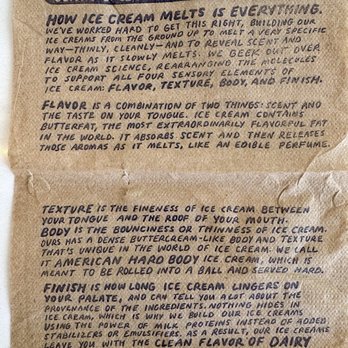 HOW ICE CREAM MELTS IS EVERYTHING.
WE'VE WORKED HARD TO GET THIS RIGHT, BUILDING OUR
ICE CREAMS FROM THE GROUND UP TO MELT A VERY SPECIFIC
WAY–THINLY, CLEANLY–AND TO REVEAL SCENT AND
FLAVOR AS IT SLOWLY MELTS. WE GEEK OUT OVER
ICE CREAM SCIENCE, REARRANGING THE MOLECULES
TO SUPPORT ALL FOUR SENSORY ELEMENTS OF
ICE CREAM: FLAVOR, TEXTURE, BODY, AND FINISH.
FLAVOR IS A COMBINATION OF TWO THINGS: SCENT AND
THE TASTE ON YOUR TONGUE. ICE CREAM CONTAINS
BUTTERFAT, THE MOST EXTRAORDINARILY FLAVORFUL FAT
IN THE WORLD. IT ABSORBS SCENT AND THEN RELEASES
THOSE AROMAS AS IT MELTS, LIKE AN EDIBLE PERFUME.
TEXTURE IS THE FINENESS OF ICE CREAM BETWEEN
YOUR TONGUE AND THE ROOF OF YOUR MOUTH.
BODY IS THE BOUNCINESS OR THINNESS OF ICE CREAM.
OURS HAS A DENSE BUTTERCREAM-LIKE BODY AND TEXTURE
THAT'S UNIQUE IN THE WORLD OF ICE CREAM. WE CALL
IT AMERICAN HARD BODY ICE CREAM, WHICH IS
MEANT TO BE ROLLED INTO A BALL AND SERVED HARD.
FINISH IS HOW LONG ICE CREAM LINGERS ON
YOUR PALATE, AND CAN TELL YOU A LOT ABOUT THE
PROVENANCE OF THE INGREDIENTS. NOTHING HIDES IN
ICE CREAM, WHICH IS WHY WE BUILD OUR ICE CREAMS
USING THE POWER OF MILK PROTEINS INSTEAD OF ADDED
STABILIZERS OR EMULSIFIERS. AS A RESULT, OUR ICE CREAMS
LEAVE YOU WITH THE CLEAN FLAVOR OF DAIRY